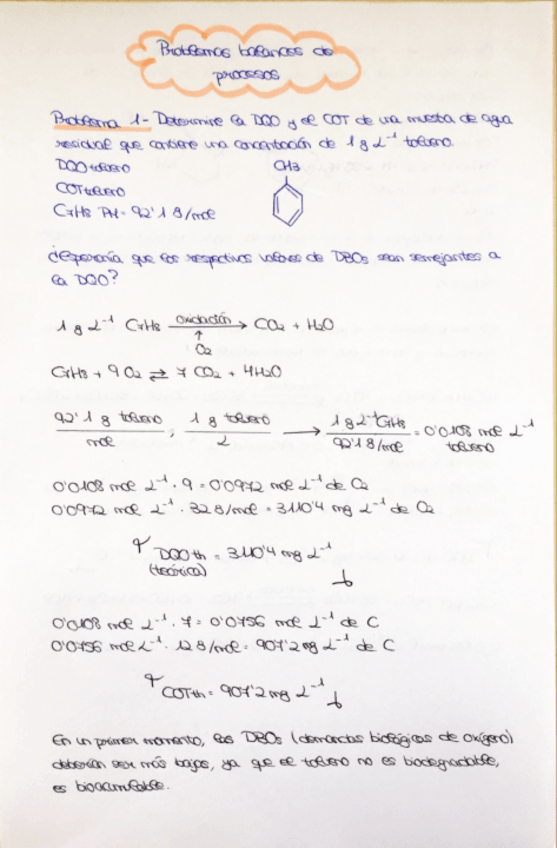 Problemas balances de
procesos
Problema 1- Determine la DQO y el COT de una muestra de agua
residual que contiene una concentración de 1 g L⁻¹ tolueno.
DQO tolueno
COT tolueno
C7H8 PM = 92'1 g/mol
CH3
¿Esperaría que los respectivos valores de DBOs sean semejantes a
la DQO?
1 g L⁻¹ C7H8 oxidación → CO2 + H2O
↑
O2
C7H8 + 9 O2 ⇄ 7 CO2 + 4H2O
92'1 g tolueno / mol ; 1 g tolueno / L → 1 g L⁻¹ C7H8 / 92'1 g/mol = 0'0108 mol L⁻¹ tolueno
0'0108 mol L⁻¹ · 9 = 0'0972 mol L⁻¹ de O2
0'0972 mol L⁻¹ · 32 g/mol = 3110'4 mg L⁻¹ de O2
DQOth = 3110'4 mg L⁻¹
(teórica)
0'0108 mol L⁻¹ · 7 = 0'0756 mol L⁻¹ de C
0'0756 mol L⁻¹ · 12 g/mol = 907'2 mg L⁻¹ de C
COTth = 907'2 mg L⁻¹
En un primer momento, las DBOs (demandas biológicas de oxígeno)
deberían ser más bajos, ya que el tolueno no es biodegradable,
es bioacumulable.